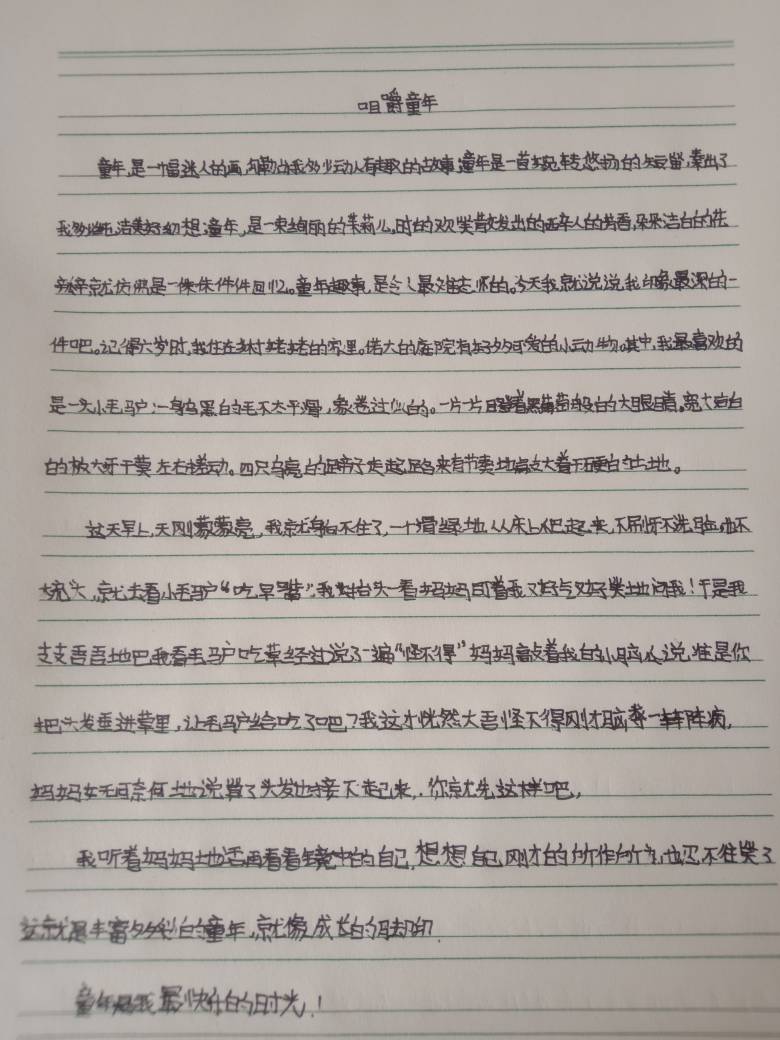 咀嚼童年
童年,是一幅迷人的画,勾勒出我多少动人有趣的故事;童年是一首婉转悠扬的短笛,奏出了
我多少纯洁美好幻想;童年,是一束绚丽的茉莉儿,时的欢笑散发出的醉人的芳香,朵朵洁白的花
就仿佛是一件件回忆。童年趣事,是令人最难忘怀的。今天我就说说我印象最深的一
件吧。记得六岁时,我住在乡村姥姥的家里。偌大的庭院有好多可爱的小动物。其中,我最喜欢的
是一头小毛驴:一身乌黑的毛不太平滑,象卷过似的。一片一片瞪着黑葡萄般的大眼睛。宽大
的放大左右摆动。四只乌亮的蹄子走起路来有节奏地敲打着干硬的土地。
这天早上,天刚蒙蒙亮,我就躺不住了,一个骨碌地从床上爬起来,不刷牙不洗脸,也不
梳头,就去看小毛驴“吃早餐”,我抬头一看妈妈盯着我又好气又好笑地问我!于是我
支支吾吾地把我看毛驴吃草经过说了一遍“怪不得”妈妈敲着我的小脑瓜说,准是你
把头发垂进草里,让毛驴给吃了吧?我这才恍然大吾怪不得刚才脑袋一阵阵痛,
妈妈无可奈何地说算了头发也接不起来,你就先这样吧,
我听着妈妈地话再看看镜中的自己,想想自己刚才的所作所为,也忍不住笑了
这就是丰富多彩的童年,就像成长的脚印.
童年是我最快乐的时光,!